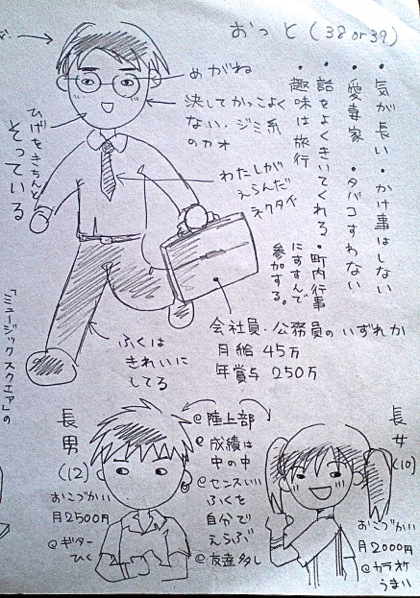 おっと(38or39)
・気が長い・かけ事はしない
・愛妻家・タバコすわない
・話をよくきいてくれる・町内行事
にすすんで
参加する。
・趣味は旅行
めがね
決してかっこよく
ない、ジミ系
のカオ
わたしが
えらんだ
ネクタイ
ひげをきちんと
そっている
会社員・公務員のいずれか
月給45万
年賞与250万
ふくは
きれいに
してる
「ミュージックスクエア」の
長男
(12)
おこづかい
月2500円
@ギター
ひく
@陸上部
@成績は
中の中
@センスいい
ふくを
自分で
えらぶ
@友達多し
長女
(10)
おこづかい
月2000円
@カラオケ
うまい